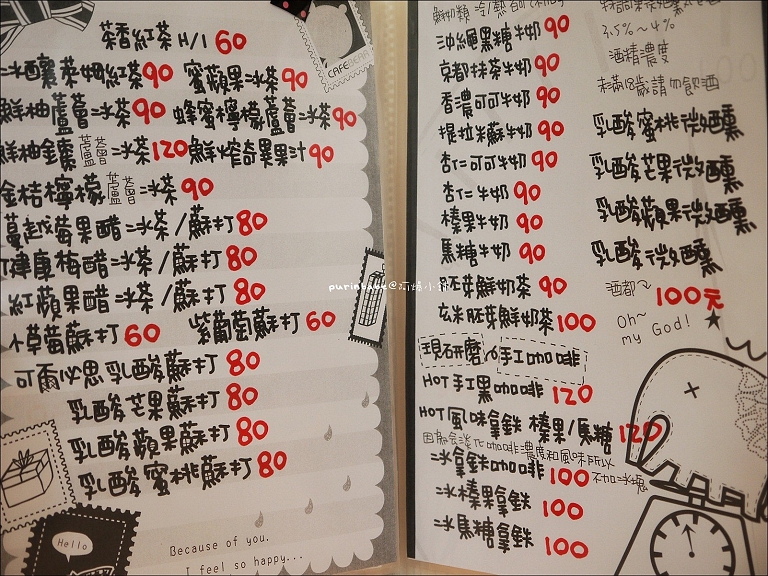 茶香紅茶 H/I 60
冰釀萊姆紅茶90 蜜蘋果冰茶90
鮮柚蘆薈冰茶90 蜂蜜檸檬蘆薈冰茶90
鮮柚鐵嶺蘆薈冰茶120 鮮榨奇異果汁90
金桔檸檬蘆薈冰茶90
蔓越莓果醋冰茶/蘇打80
健康梅醋冰茶/蘇打80
紅蘋果醋冰茶/蘇打80
小草莓蘇打60 紫葡萄蘇打60
可爾必思乳酸蘇打80
乳酸芒果蘇打80
乳酸蘋果蘇打80
乳酸蜜桃蘇打80
Because of you.
I feel so happy...
Hello
CAFE
purintare@阿婿小舖
鮮奶類 冷/熱
沖繩黑糖牛奶90
京都抹茶牛奶90
香濃可可牛奶90
提拉米蘇牛奶90
杏仁可可牛奶90
杏仁牛奶90
榛果牛奶90
焦糖牛奶90
胚芽鮮奶茶90
玄米胚芽鮮奶茶100
現研磨の手工咖啡
HOT手工黑咖啡120
HOT風味拿鐵 榛果/焦糖120
因為會淡化咖啡濃度和風味所以
冰拿鐵咖啡100 不加冰塊
冰榛果拿鐵100
冰焦糖拿鐵100
3.5%~4%
酒精濃度
未滿18歲請勿飲酒
乳酸蜜桃微醺
乳酸芒果微醺
乳酸蘋果微醺
乳酸微醺
酒都~100元
Oh~
my God!